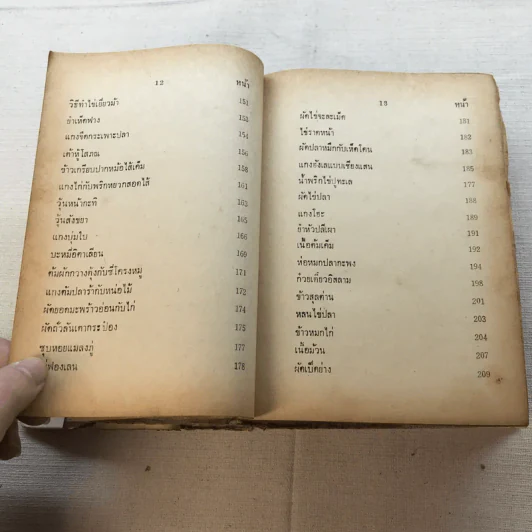 12 หน้า
วิธีทำไข่เยี่ยวม้า 151
ยำเห็ดฟาง 153
แกงจืดกระเพาะปลา 154
เต้าหู้โสภณ 156
ข้าวเกรียบปากหม้อไส้เค็ม 158
แกงไก่กับพริกหยวกสอดไส้ 161
วุ้นหน้ากะทิ 163
วุ้นสังขยา 165
แกงบุ่มใบ 166
บะหมี่อิตาเลียน 169
ต้มผักกวางตุ้งกับซี่โครงหมู 171
แกงต้มปลาร้ากับหน่อไม้ 173
ผัดยอดมะพร้าวอ่อนกับไก่ 174
ผัดถั่วลันเตากระป๋อง 175
ซุบหอยแมลงภู่ 177
ฟองเลน 178
13 หน้า
ผัดไข่จะละเม็ด 181
ไข่ราดหน้า 182
ผัดปลาหมึกกับเห็ดโคน 183
แกงฮังเลแบบเชียงแสน 185
น้ำพริกไข่ปูทะเล 177
ผัดไข่ปลา 188
แกงโฮะ 189
ยำหัวปลีเผา 191
เนื้อต้มเค็ม 192
ห่อหมกปลากะพง 194
ก๋วยเตี๋ยวอิสลาม 198
ข้าวสุลต่าน 201
หลนไข่ปลา 203
ข้าวหมกไก่ 204
เนื้อม้วน 207
ผัดเป็ดย่าง 209